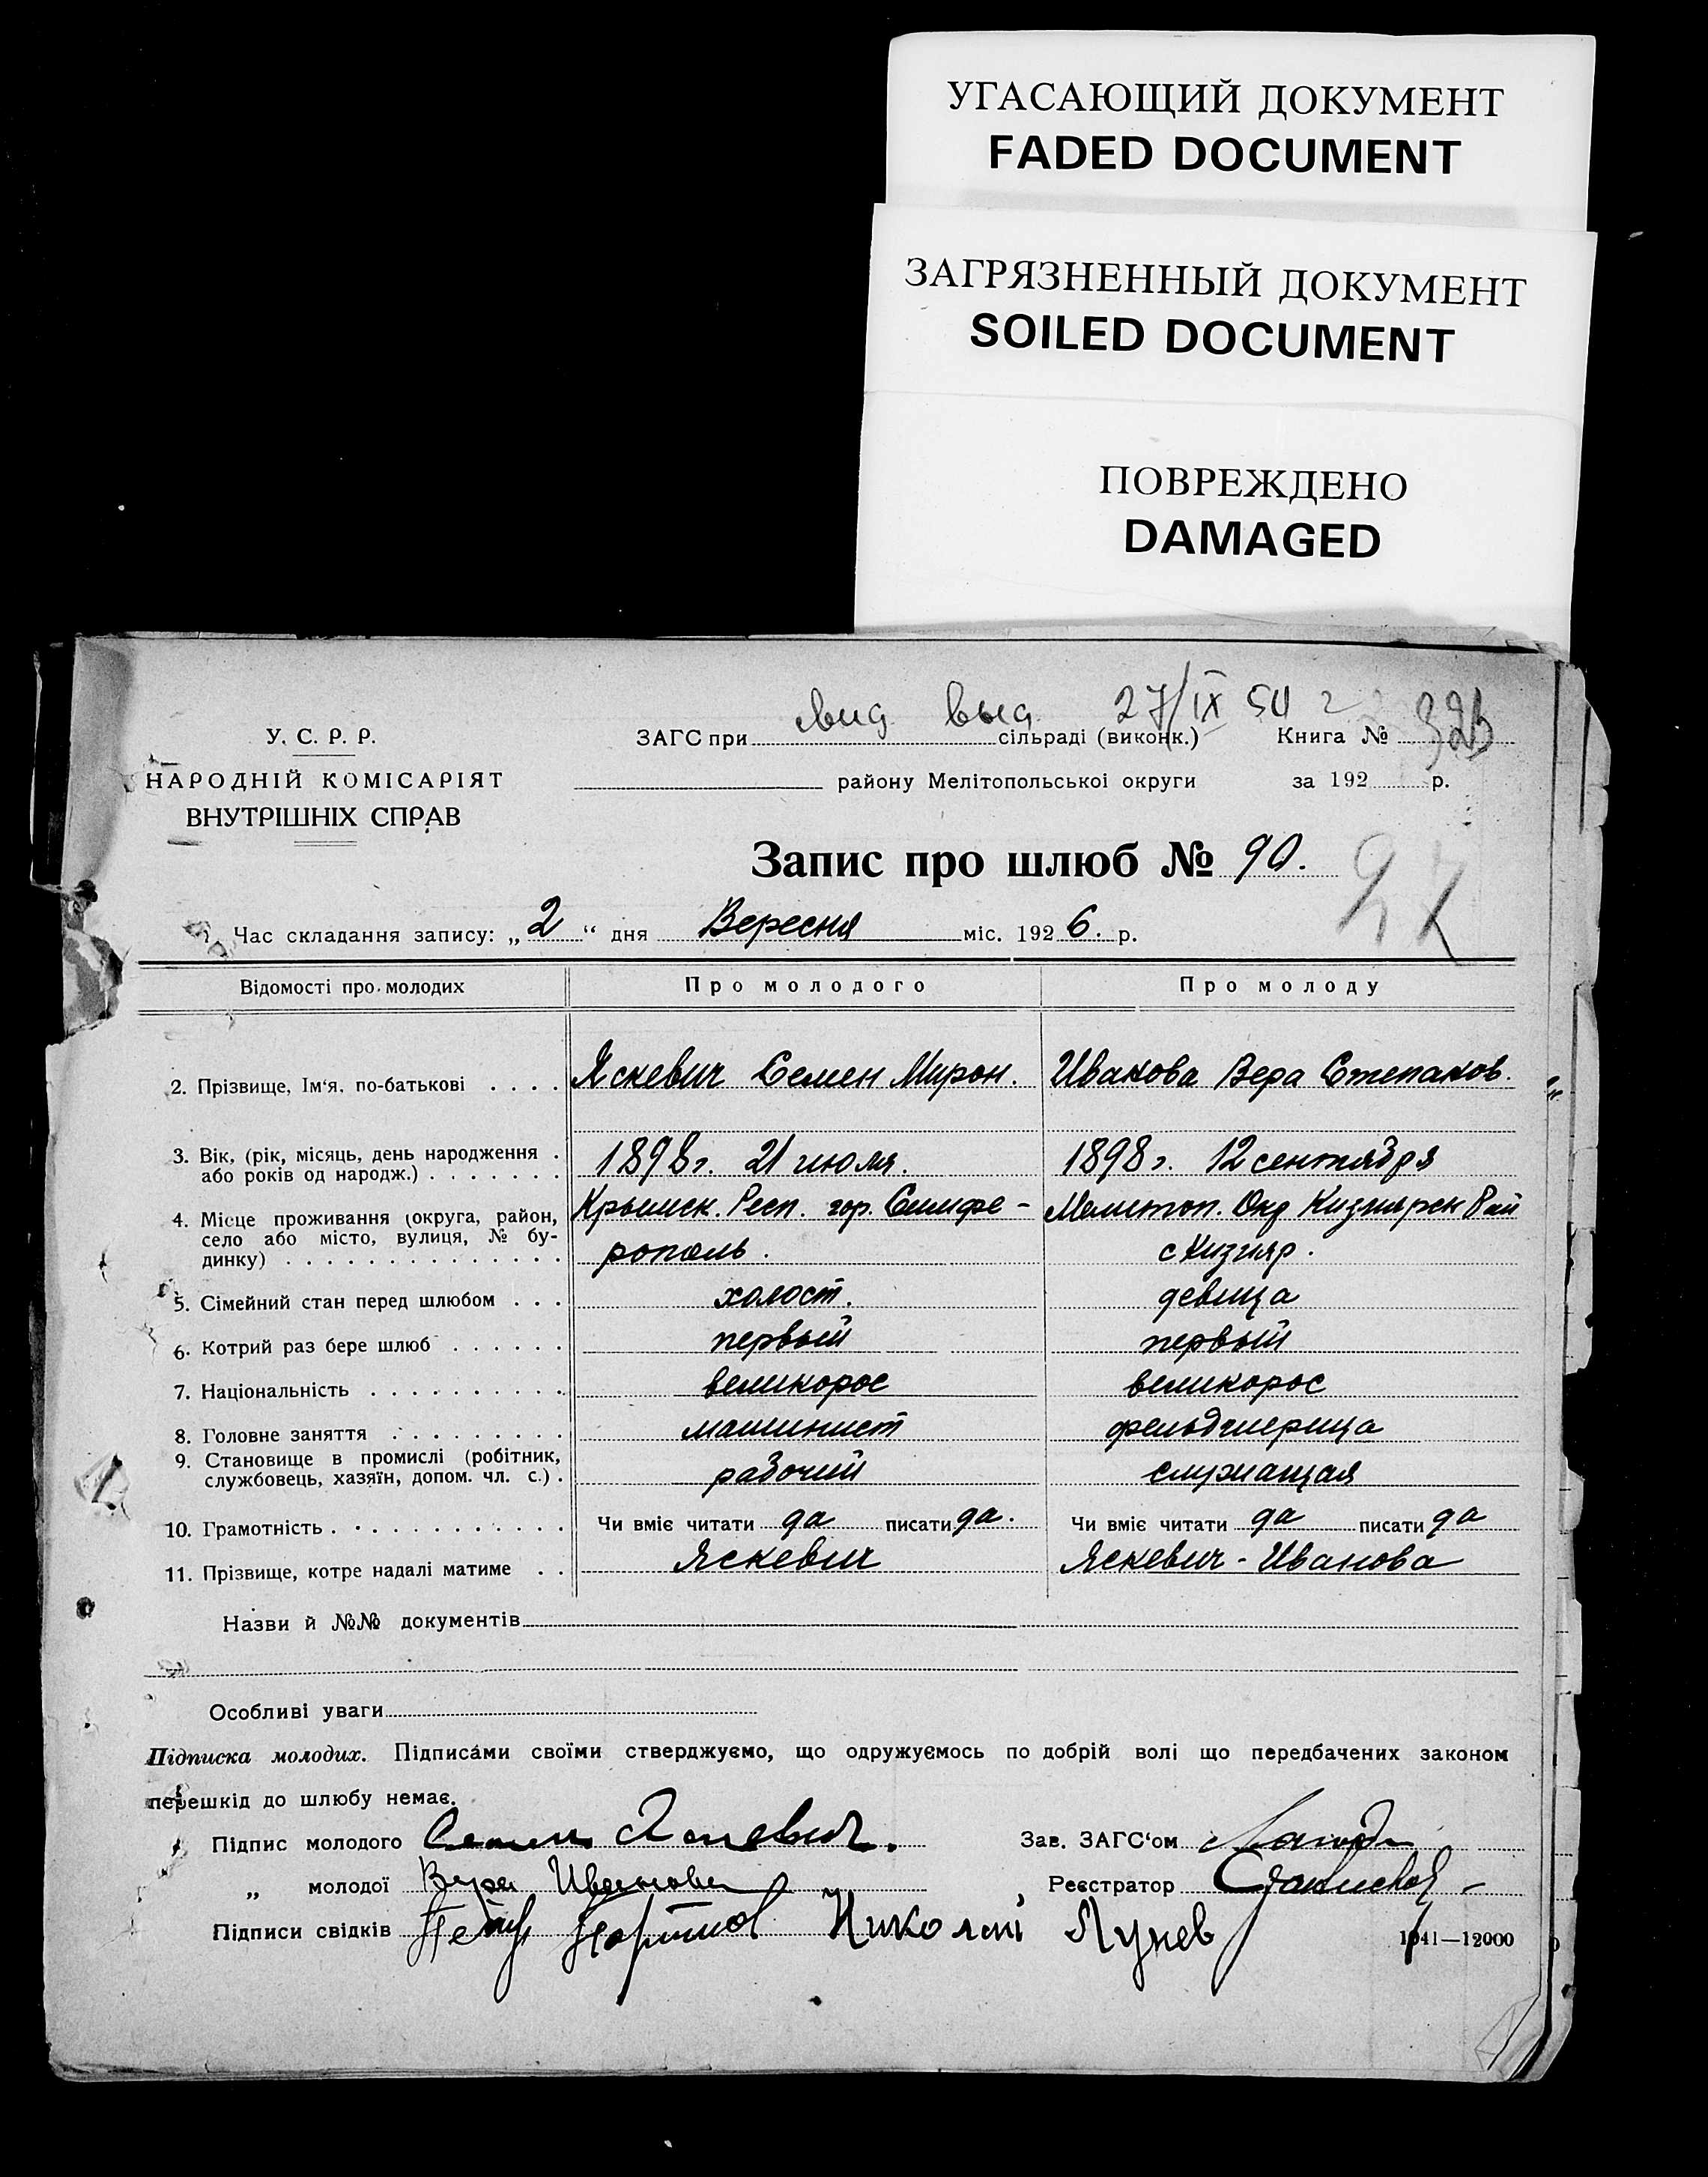 УГАСАЮЩИЙ ДОКУМЕНТ
FADED DOCUMENT
ЗАГРЯЗНЕННЫЙ ДОКУМЕНТ
SOILED DOCUMENT
ПОВРЕЖДЕНО
DAMAGED
выд 27/IX 54 г
У. С. Р. Р.
ЗАГС при сільраді (виконк.) Книга №
НАРОДНІЙ КОМІСАРІЯТ
району Мелітопольської округи за 192 р.
ВНУТРІШНІХ СПРАВ
Запис про шлюб № 90.
Час складання запису: „2“ дня Вересня міс. 1926. р.
Відомості про молодих Про молодого Про молоду
2. Прізвище, Ім‘я, по-батькові . . . . Яскевич Семен Мирон. Иванова Вера Степанов.
3. Вік, (рік, місяць, день народження . або років од народж.) . . . . . . . 1898 г. 21 июля. 1898 г. 12 сентября
4. Місце проживання (округа, район, Крымск. Респ. гор. Симфе- Мелитоп. Окр Кизиярск Рай
село або місто, вулиця, № бу-
динку) . . . . . . . . . . . . . . рополь. с Кизияр.
5. Сімейний стан перед шлюбом . . . холост. девица
6. Котрий раз бере шлюб . . . . . . первый первый
7. Національність . . . . . . . . . . великорос великорос
8. Головне заняття . . . . . . . . . машинист фельдшерица
9. Становище в промислі (робітник,
службовець, хазяїн, допом. чл. с.) . рабочий служащая
10. Грамотність . . . . . . . . . . . . Чи вміє читати да писати да. Чи вміє читати да писати да
11. Прізвище, котре надалі матиме . . Яскевич Яскевич-Иванова
Назви й №№ документів
Особливі уваги
Підписка молодих. Підписами своїми стверджуємо, що одружуємось по добрій волі що передбачених законом
перешкід до шлюбу немає.
Підпис молодого Семен Яскевич. Зав. ЗАГС‘ом
„ молодої Вера Иванова Реєстратор
Підписи свідків Николай Лунев 1041—12000